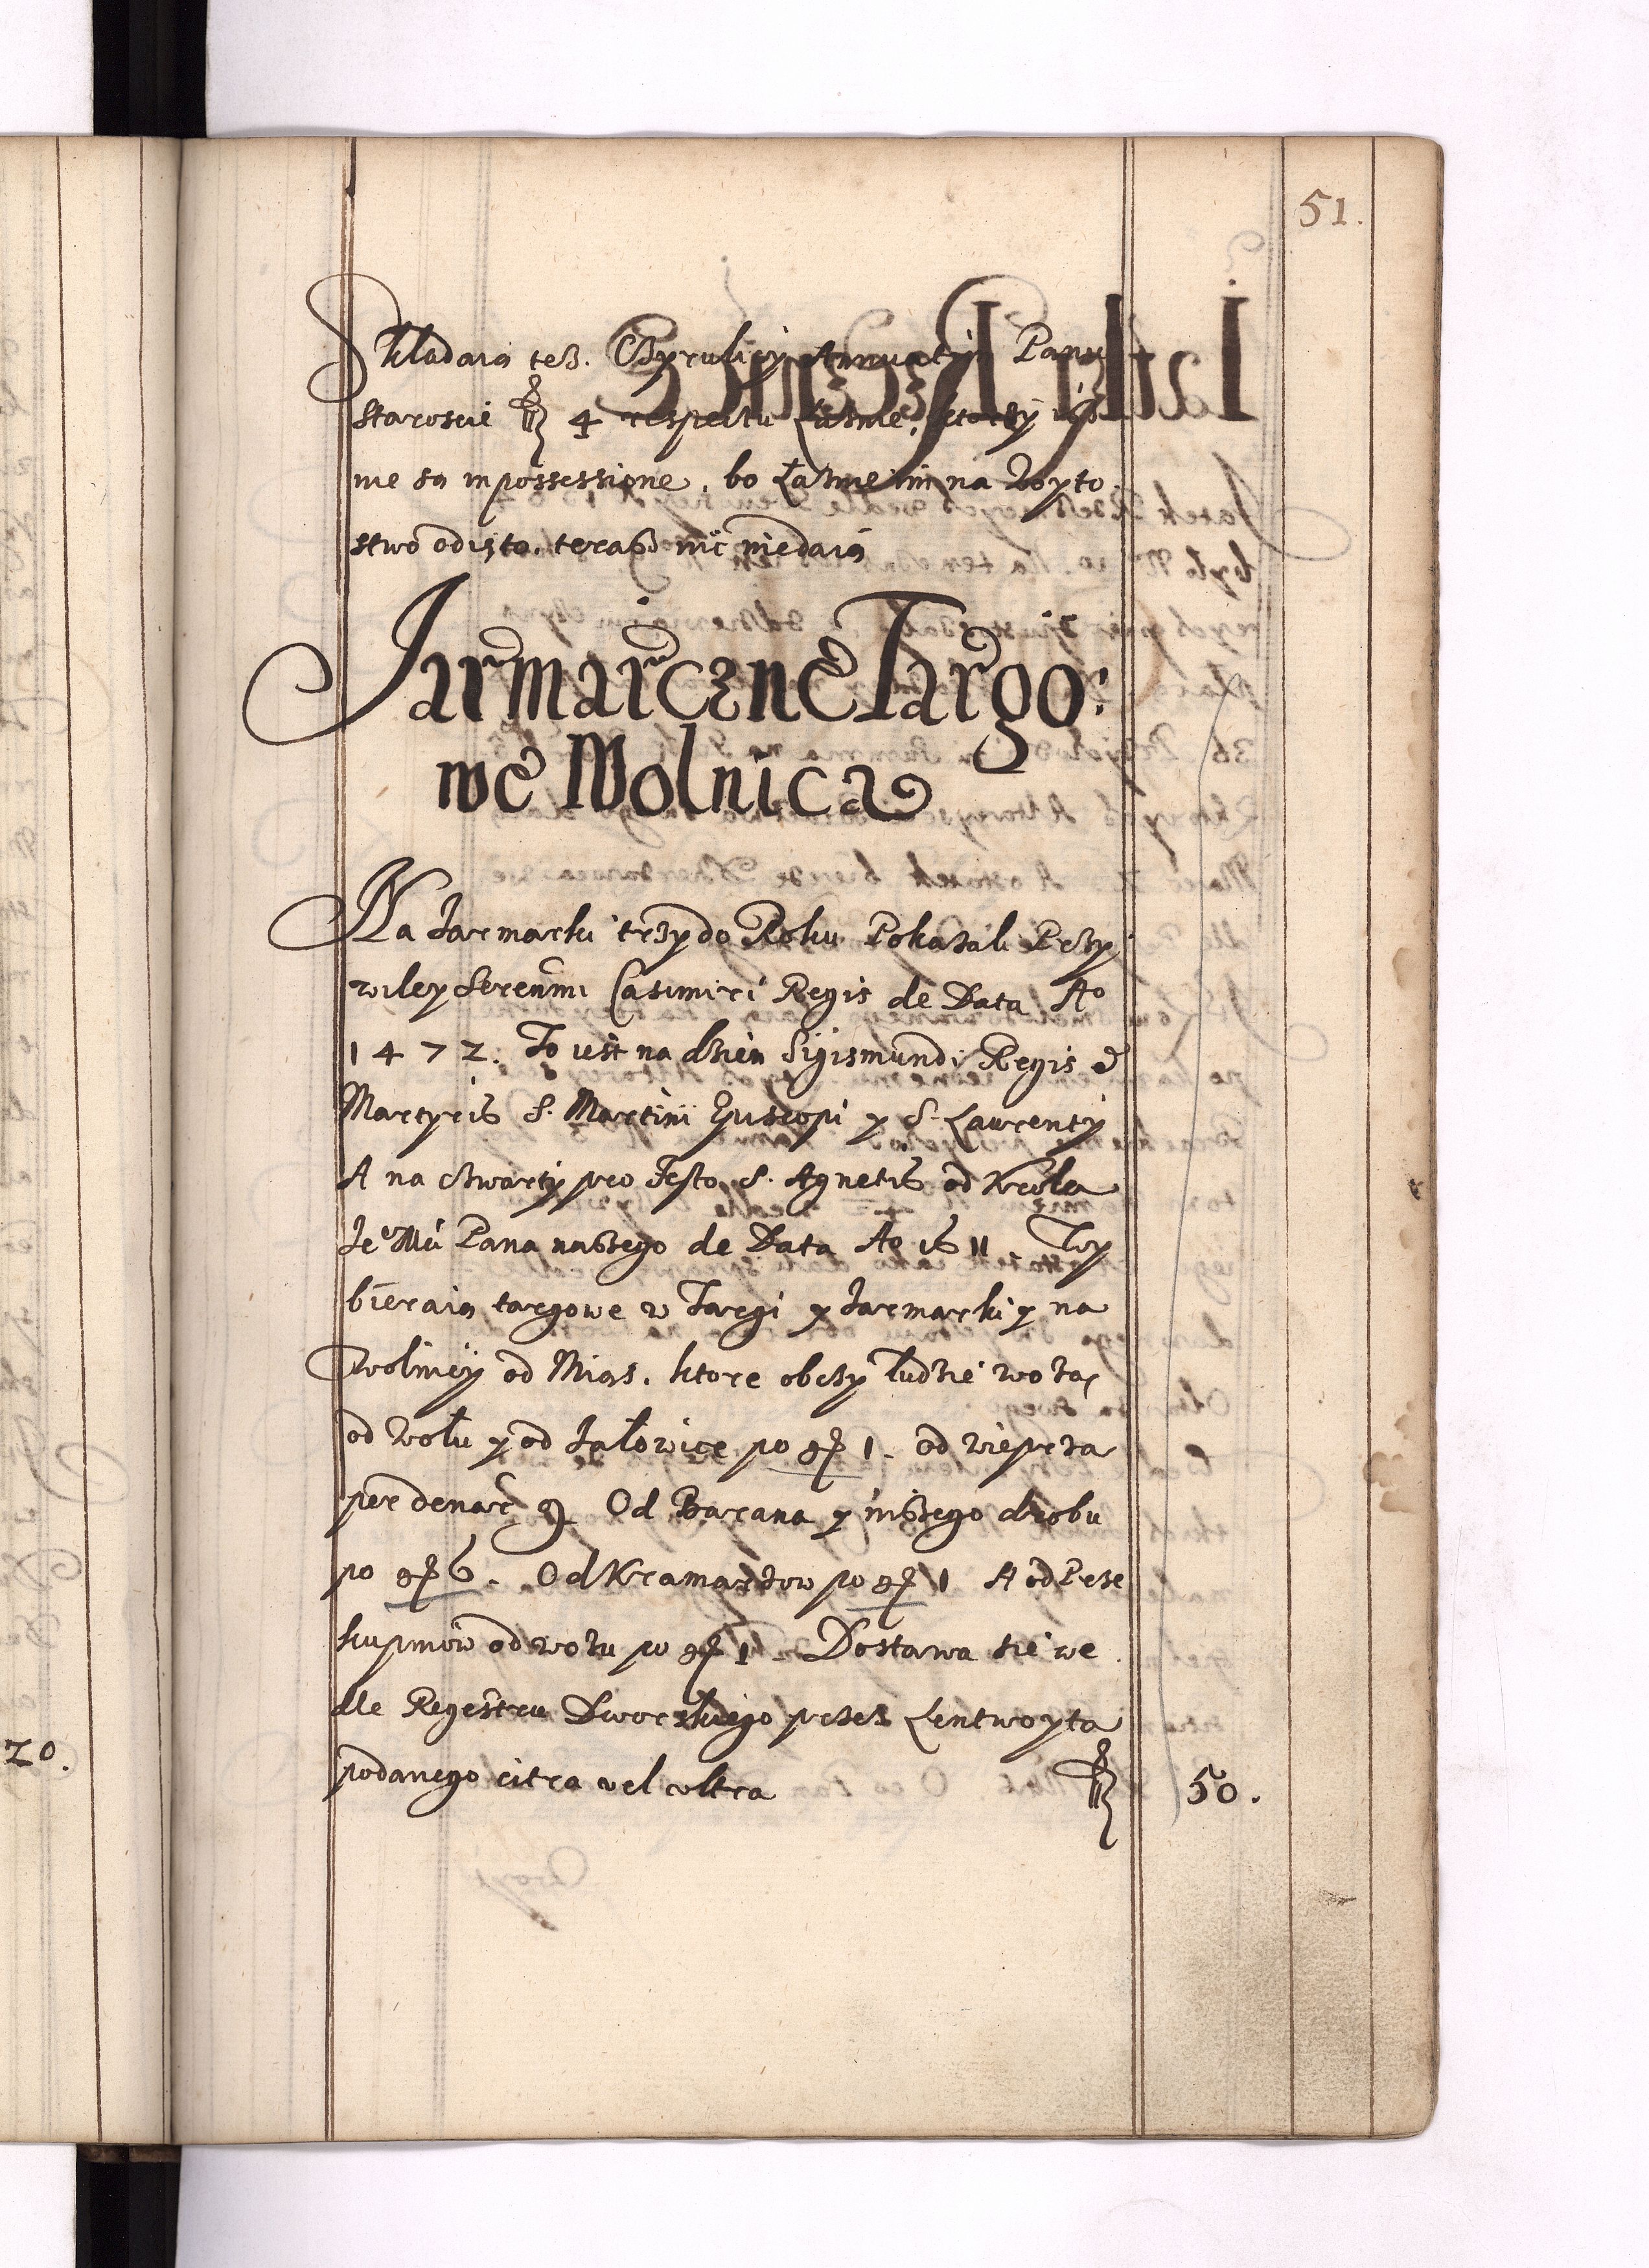 51.
Skladaią tesz. Cÿrulicÿ Annuatim Panu
staroscie 4 respectu Łaznie, ktorzÿ isz
nie są in possessione, bo Łaznie im na Woyto
stwo odięto. terasz nic niedaią
Jarmarczne Targo:
we Wolnica
Na Jarmarki trzy do Roku Pokazali Przy
wiley Serenmi Casimiri Regis de Data Ao
1472. To iest na dzien Sigismundi Regis &
Martyris S. Martini Episcopi y S. Laurentÿ
A na czwartÿ pro Festo S. Agnetis od Krola
Je° Mči Pana naszego de Data Ao 1611 Wy
bieraią targowe w Targi y Jarmarki y na
wolnicÿ od Mias. ktore obczy ludzie woza,
od Wolu y od Jalowice po g 1. od wieprza
per denar 9 Od Barana y inszego drobu
po g 6. Od Kramarzow po g 1 A od Prze
kupniow od wozu po g 1. Dostawa sie we
dle Regestru Dworskiego przez Lentwoyta
podanego citra vel ultra 50.
20.